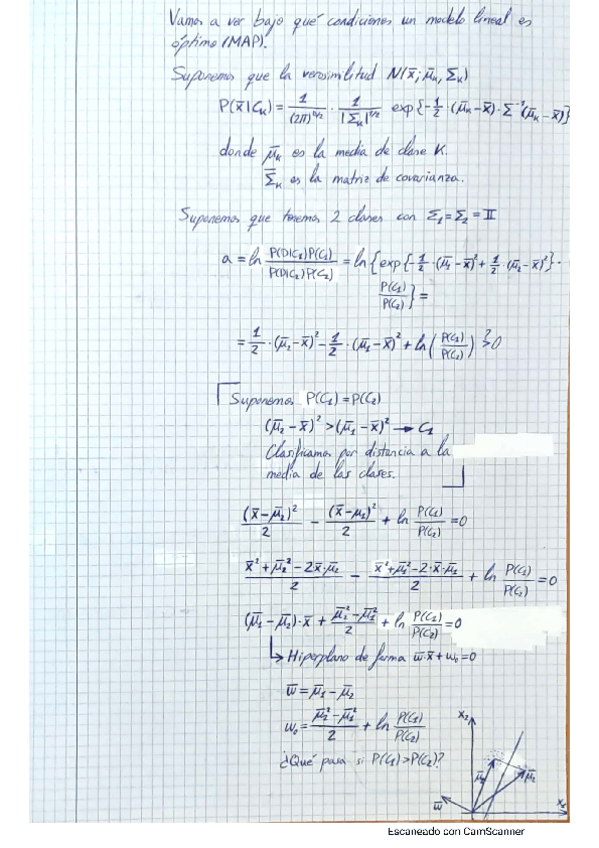 Vamos a ver bajo qué condiciones un modelo lineal es
óptimo (MAP).
Suponemos que la verosimilitud N(x̄; μ̄ₖ, Σₖ)
P(x̄|Cₖ) = 1/(2π)^(n/2) · 1/|Σₖ|^(1/2) exp{-1/2 · (μ̄ₖ-x̄) · Σ⁻¹(μ̄ₖ-x̄)}
donde μ̄ₖ es la media de clase K.
Σ̄ₖ es la matriz de covarianza.
Suponemos que tenemos 2 clases con Σ₁=Σ₂=II
a = ln P(D|C₁)P(C₁)/P(D|C₂)P(C₂) = ln{exp{-1/2 · (μ̄₁-x̄)² + 1/2 · (μ̄₂-x̄)²} ·
P(C₁)/P(C₂)} =
= 1/2 · (μ̄₂-x̄)² - 1/2 · (μ̄₁-x̄)² + ln(P(C₁)/P(C₂)) >? 0
Suponemos P(C₁)=P(C₂)
(μ̄₂-x̄)² > (μ̄₁-x̄)² → C₁
Clasificamos por distancia a la
media de las clases.
(x̄-μ̄₂)²/2 - (x̄-μ̄₁)²/2 + ln P(C₁)/P(C₂) = 0
(x̄²+μ̄₂²-2x̄·μ̄₂)/2 - (x̄²+μ̄₁²-2·x̄·μ̄₁)/2 + ln P(C₁)/P(C₂) = 0
(μ̄₁-μ̄₂)·x̄ + (μ̄₂²-μ̄₁²)/2 + ln P(C₁)/P(C₂) = 0
↳ Hiperplano de forma w̄·x̄+w₀=0
w̄ = μ̄₁-μ̄₂
w₀ = (μ̄₂²-μ̄₁²)/2 + ln P(C₁)/P(C₂)
¿Qué pasa si P(C₁)>P(C₂)?
x₂
w̄
Escaneado con CamScanner